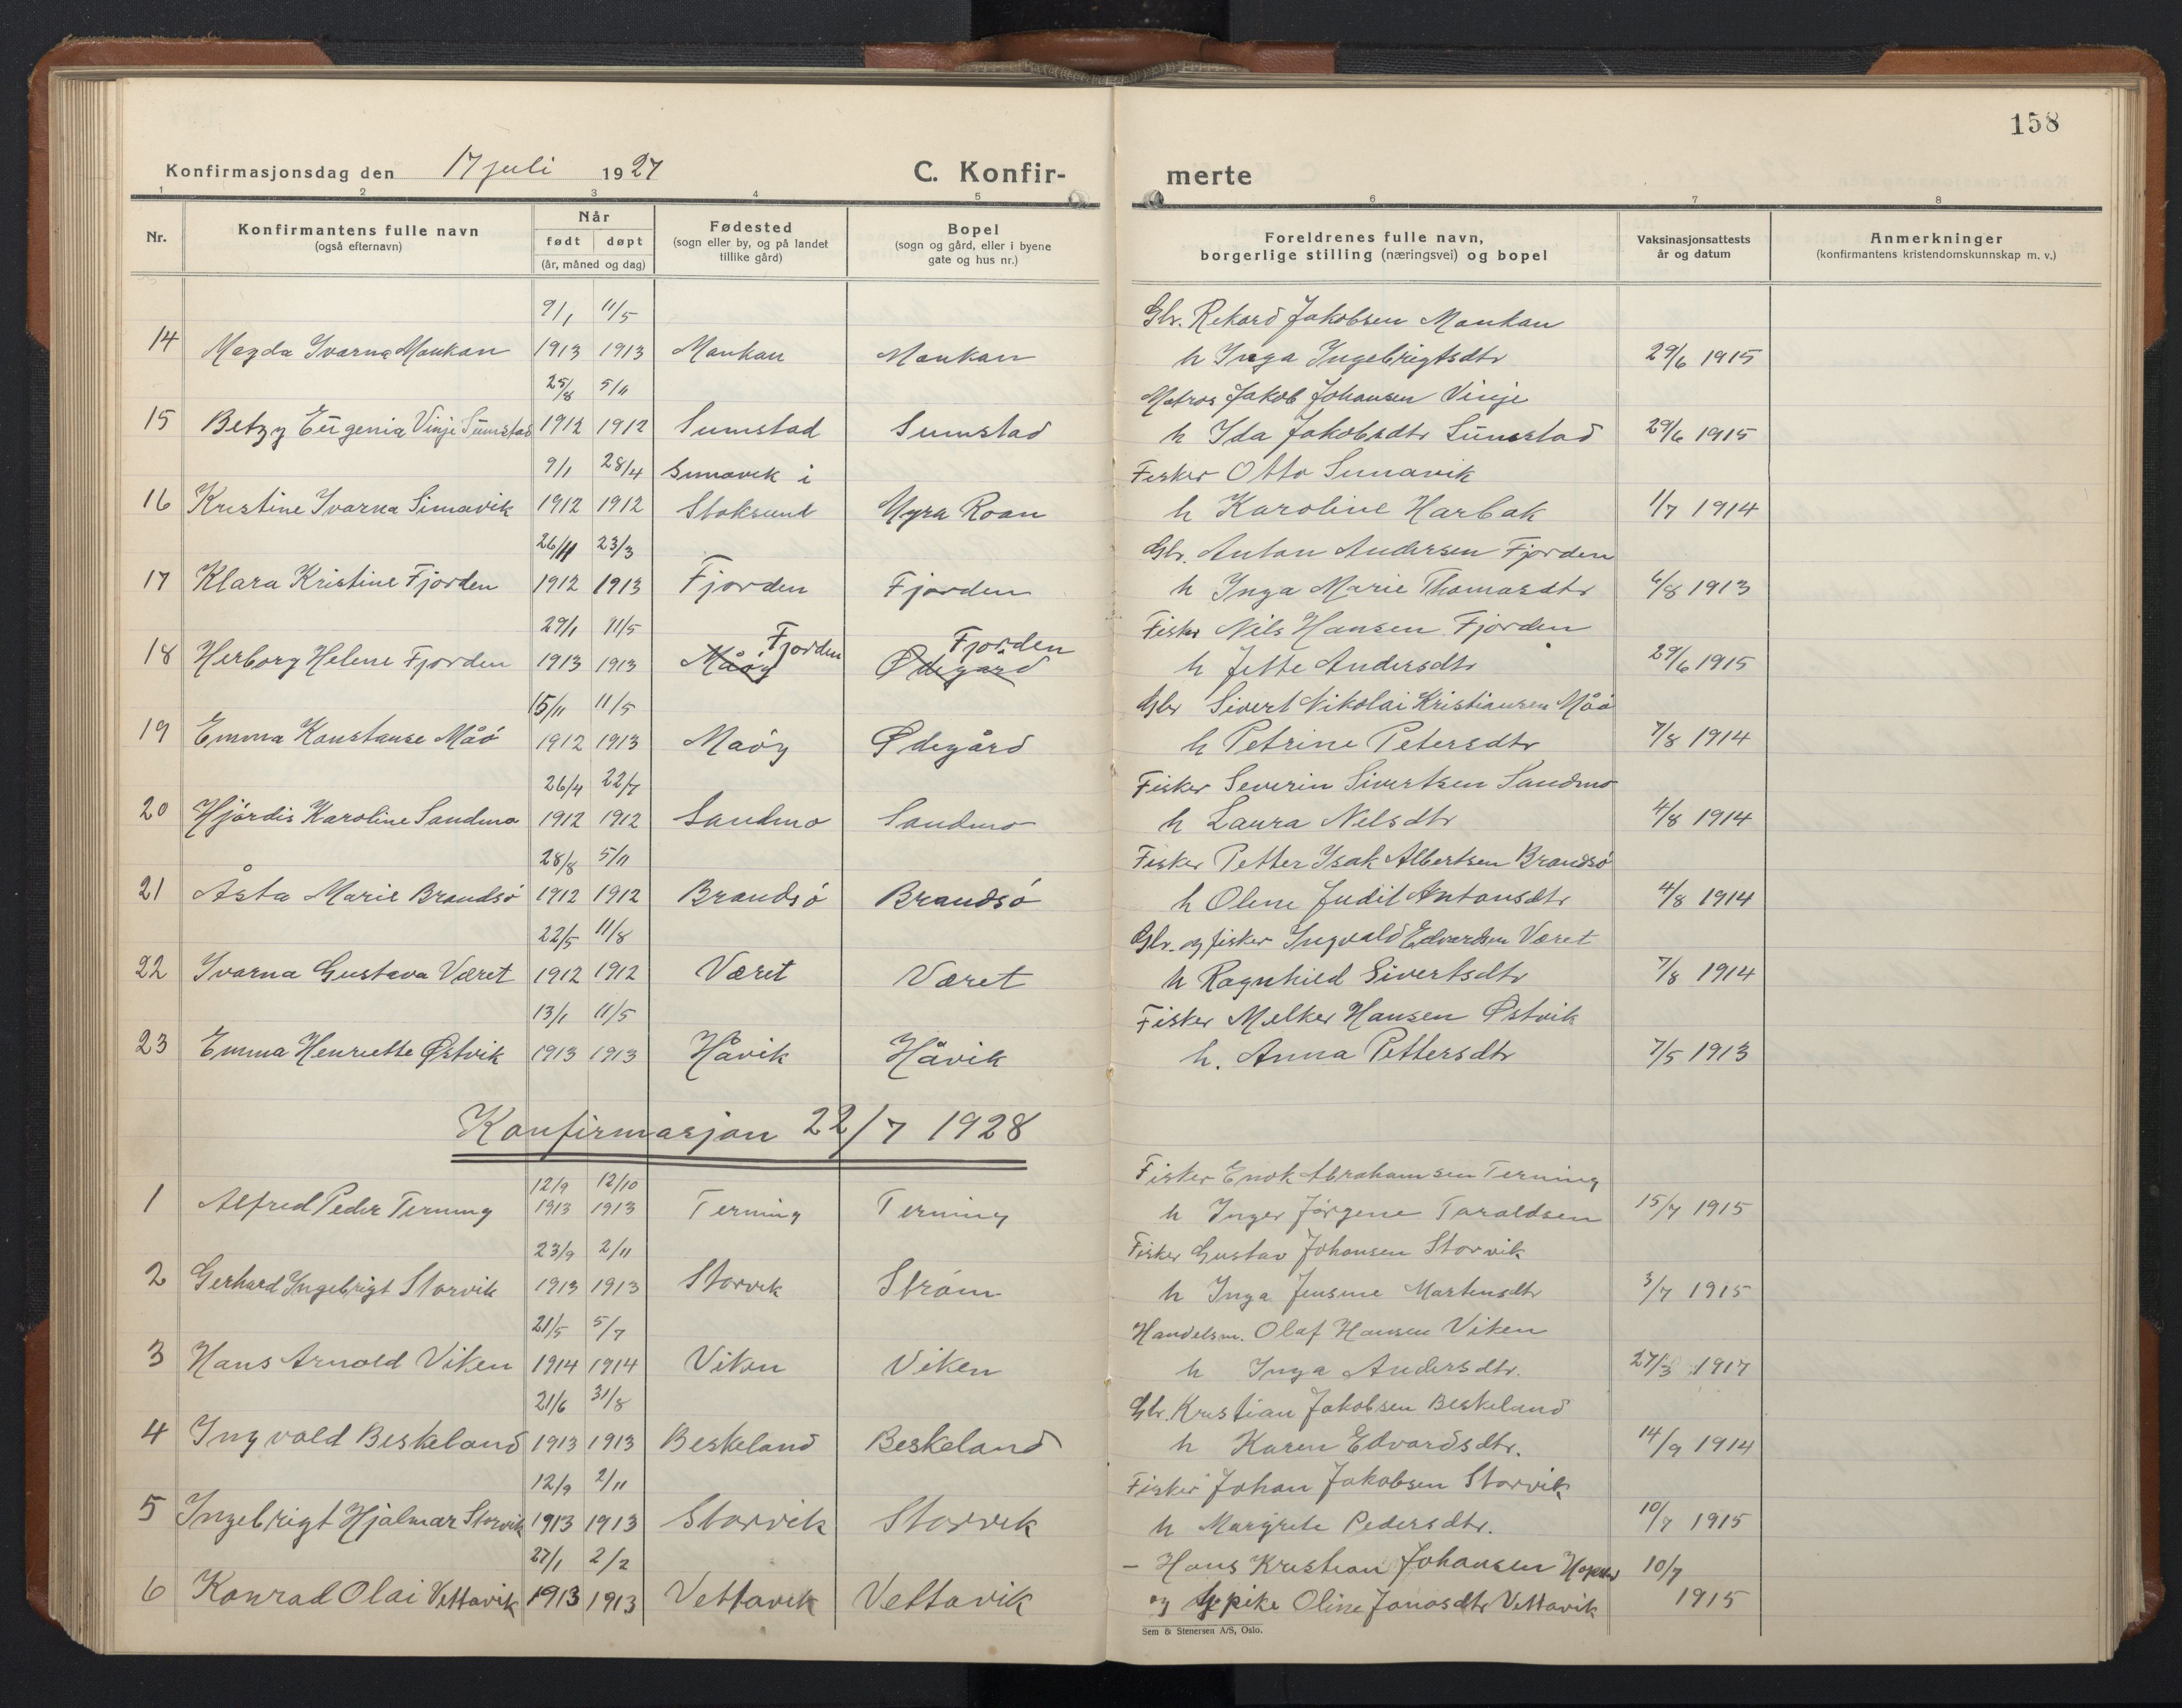 158
Konfirmasjonsdag den 17 juli 1927 C. Konfir- merte
1 2 3 4 5 6 7 8
Nr.
Konfirmantens fulle navn
(også efternavn)
Når
født døpt
(år, måned og dag)
Fødested
(sogn eller by, og på landet
tillike gård)
Bopel
(sogn og gård, eller i byene
gate og hus nr.)
Foreldrenes fulle navn,
borgerlige stilling (næringsvei) og bopel
Vaksinasjonsattests
år og datum
Anmerkninger
(konfirmantens kristendomskunnskap m. v.)
9/1 11/5 Gbr. Rikard Jakobsen Monkan
14 Magda Ivarna Monkan 1913 1913 Monkan Monkan h Inga Ingebrigtsdtr 29/6 1915
25/8 5/11 Matros Jakob Johansen Vinje
15 Betzy Eugenia Vinje Sumstad 1912 1912 Sumstad Sumstad h Ida Jakobsdtr Sumstad 29/6 1915
9/1 28/4 Sumavik i Fisker Otto Sumavik
16 Kristine Ivarna Simavik 1912 1912 Stoksund Myra Roan h Karoline Harbak 1/7 1914
26/11 23/3 Gbr. Anton Andersen Fjorden
17 Klara Kristine Fjorden 1912 1913 Fjorden Fjorden h Inga Marie Thomasdtr 6/8 1913
29/1 11/5 Fjorden Fjorden Fisker Nils Hansen Fjorden
18 Herborg Helene Fjorden 1913 1913 Måøy Ødegård h Jette Andersdtr 29/6 1915
15/11 11/5 Gbr Sivert Nikolai Kristiansen Måø
19 Emma Konstanse Måø 1912 1913 Maøy Ødegård h Petrine Petersdtr 7/8 1914
26/4 22/7 Fisker Severin Sivertsen Sandmo
20 Hjørdis Karoline Sandmo 1912 1912 Sandmo Sandmo h Laura Nelsdtr 4/8 1914
28/8 5/11 Fisker Petter Isak Albertsen Brandsø
21 Åsta Marie Brandsø 1912 1912 Brandsø Brandsø h Oline Judit Antonsdtr 4/8 1914
22/5 11/8 Gbr. og fisker Ingvald Edvardsen Været
22 Ivarna Gustava Været 1912 1912 Været Været h Ragnhild Sivertsdtr 7/8 1914
13/1 11/5 Fisker Melker Hansen Østvik
23 Emma Henriette Østvik 1913 1913 Håvik Håvik h. Anna Pettersdtr 7/5 1913
Konfirmasjon 22/7 1928
12/9 12/10 Fisker Enok Abrahamsen Terning
1 Alfred Peder Terning 1913 1913 Terning Terning h Inger Jørgene Taraldsen 15/7 1915
23/9 2/11 Fisker Gustav Johansen Storvik
2 Gerhard Ingebrigt Storvik 1913 1913 Storvik Strøm h Inga Jensine Martensdtr 3/7 1915
21/5 5/7 Handelsm. Olaf Hansen Viken
3 Hans Arnold Viken 1914 1914 Viken Viken h Inga Andersdtr. 27/3 1917
21/6 31/8 Gbr. Kristian Jakobsen Beskeland
4 Ingvald Beskeland 1913 1913 Beskeland Beskeland h Karen Edvardsdtr. 14/9 1914
12/9 2/11 Fisker Johan Jakobsen Storvik
5 Ingebrigt Hjalmar Storvik 1913 1913 Storvik Storvik h Margrete Pedersdtr. 10/7 1915
27/1 2/2 - Hans Kristian Johansen 10/7
6 Konrad Olai Vettavik 1913 1913 Vettavik Vettavik og pike Oline Jonasdtr Vettavik 1915
Sem & Stenersen A/S, Oslo.